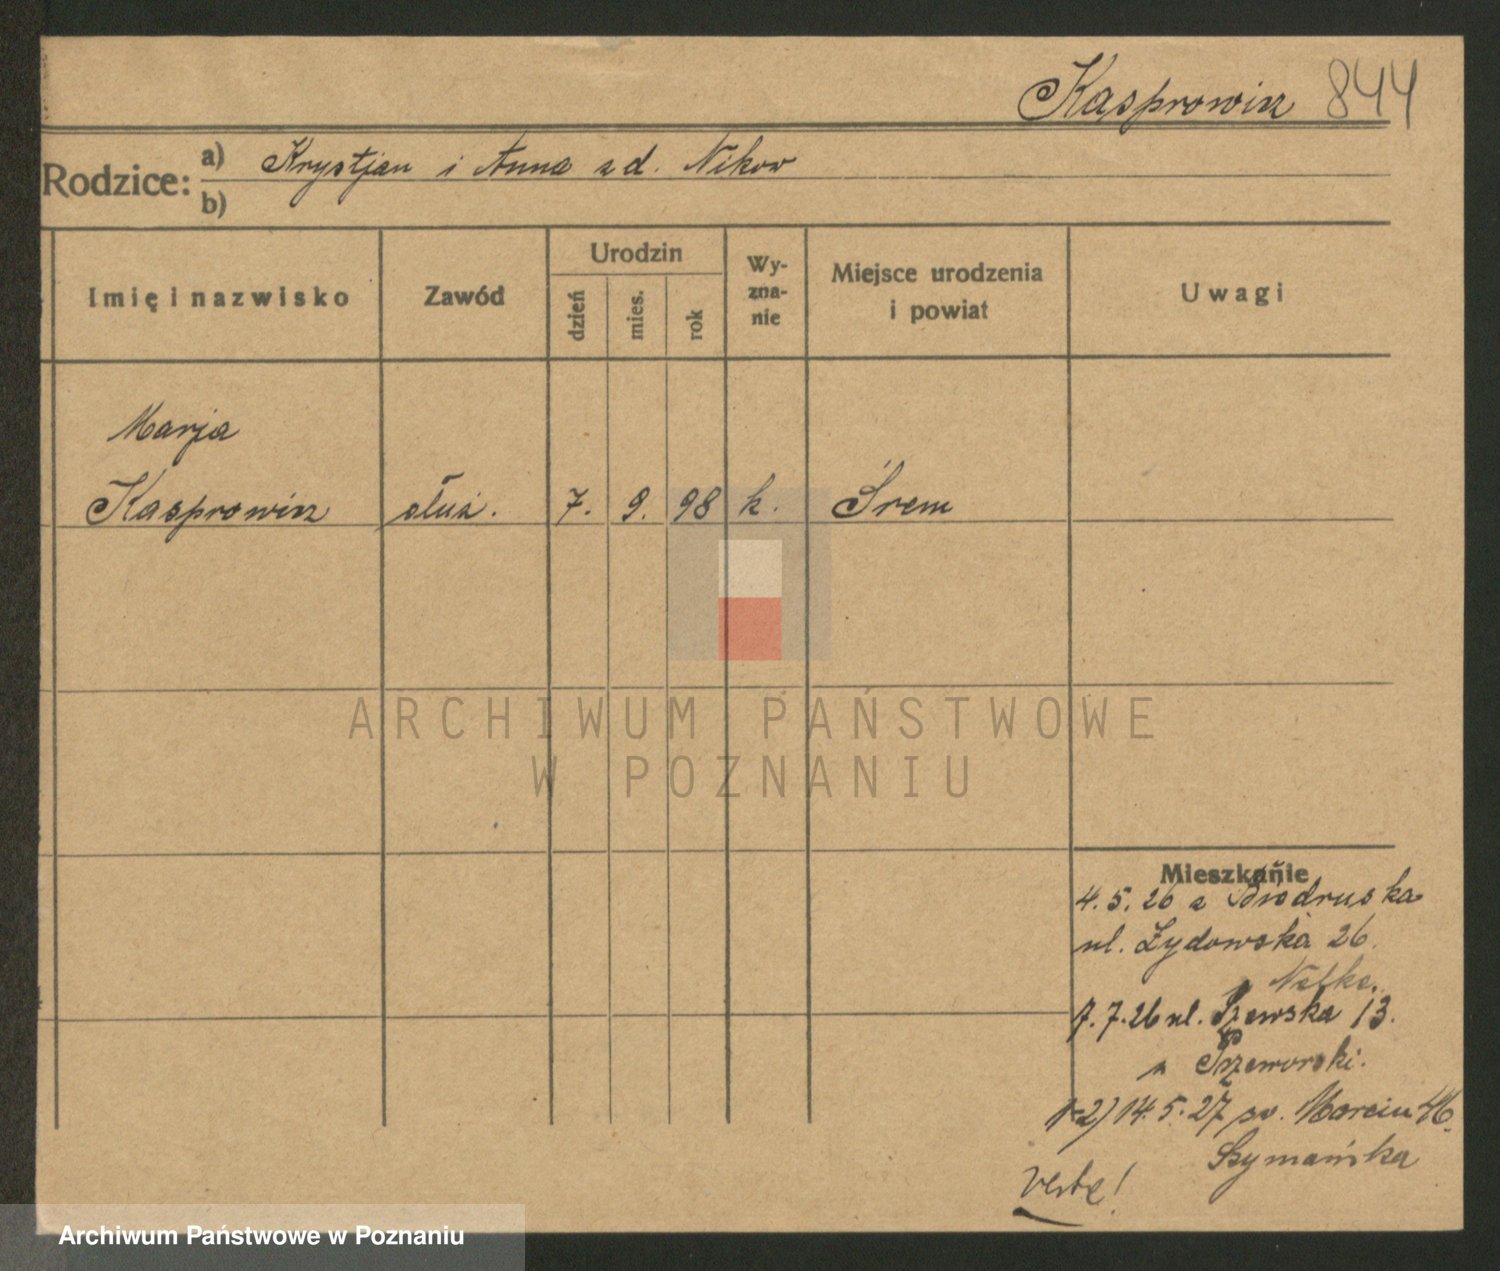 Kasprowicz 844
Rodzice: a) Krystjan i Anna z d. Nikow
b)
Imię i nazwisko
Zawód
Urodzin
dzień
mies.
rok
Wy-
zna-
nie
Miejsce urodzenia
i powiat
Uwagi
Marja
Kasprowicz służ. 7. 9. 98 k. Śrem
ARCHIWUM PAŃSTWOWE
W POZNANIU
Mieszkanie
4. 5. 26 z Biedruska
ul. Żydowska 26.
7. 7. 26 ul. Szewska 13.
14. 5. 27 św. Marcin
Szymańska
Archiwum Państwowe w Poznaniu